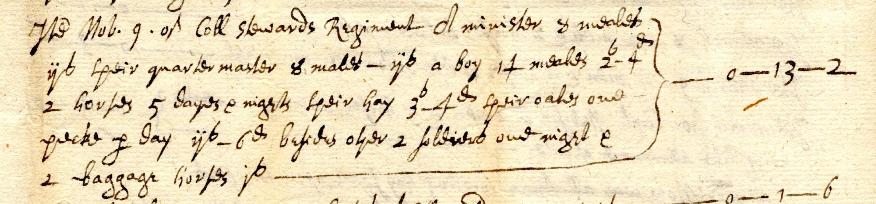 Ite Nob. 9. of Coll Stewards Regiment A minister 8 meales
ijs their quartermaster 8 males – ijs a boy 14 meales 2s–4d
2 horses 5 dayes & nights their hay 3s–4d their oates one — 0–13–2
pecke per day ijs–6d besides other 2 soldiers one night &
2 baggage horses js
0–1–6